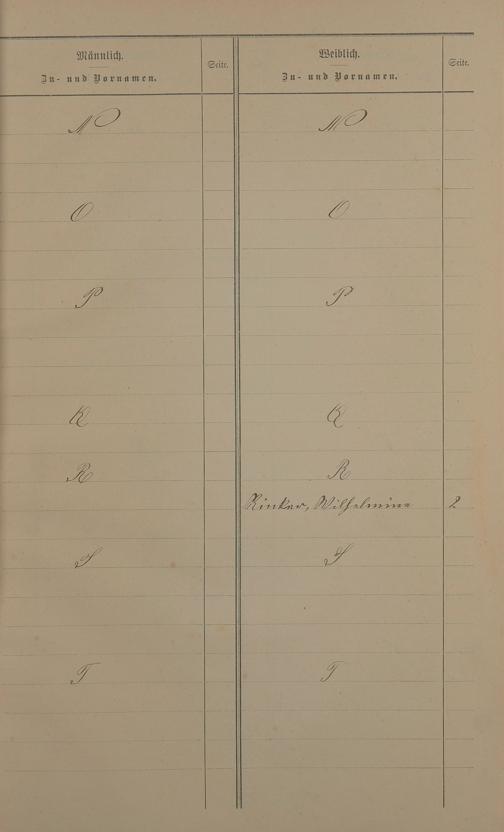 Männlich.
Zu- und Vornamen.
Seite.
Weiblich.
Zu- und Vornamen.
Seite.
N
N
O
O
P
P
Q
Q
R
R
Rinker, Wilhelmine 2
S
S
T
T